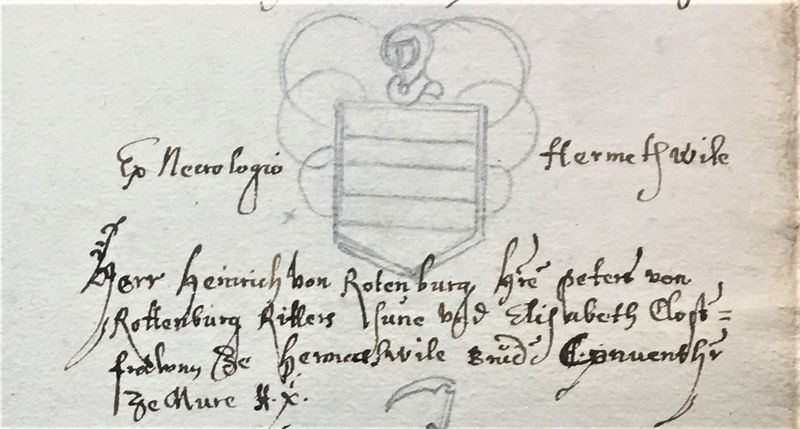 Ex Necrologio Hermethwile
Herr Heinrich von Rotenburg, Hre peters von
Rottenburg Ritters sune vnd Elisabeth Clost=
frawen ze Hermathwile Convenths
ze Mure